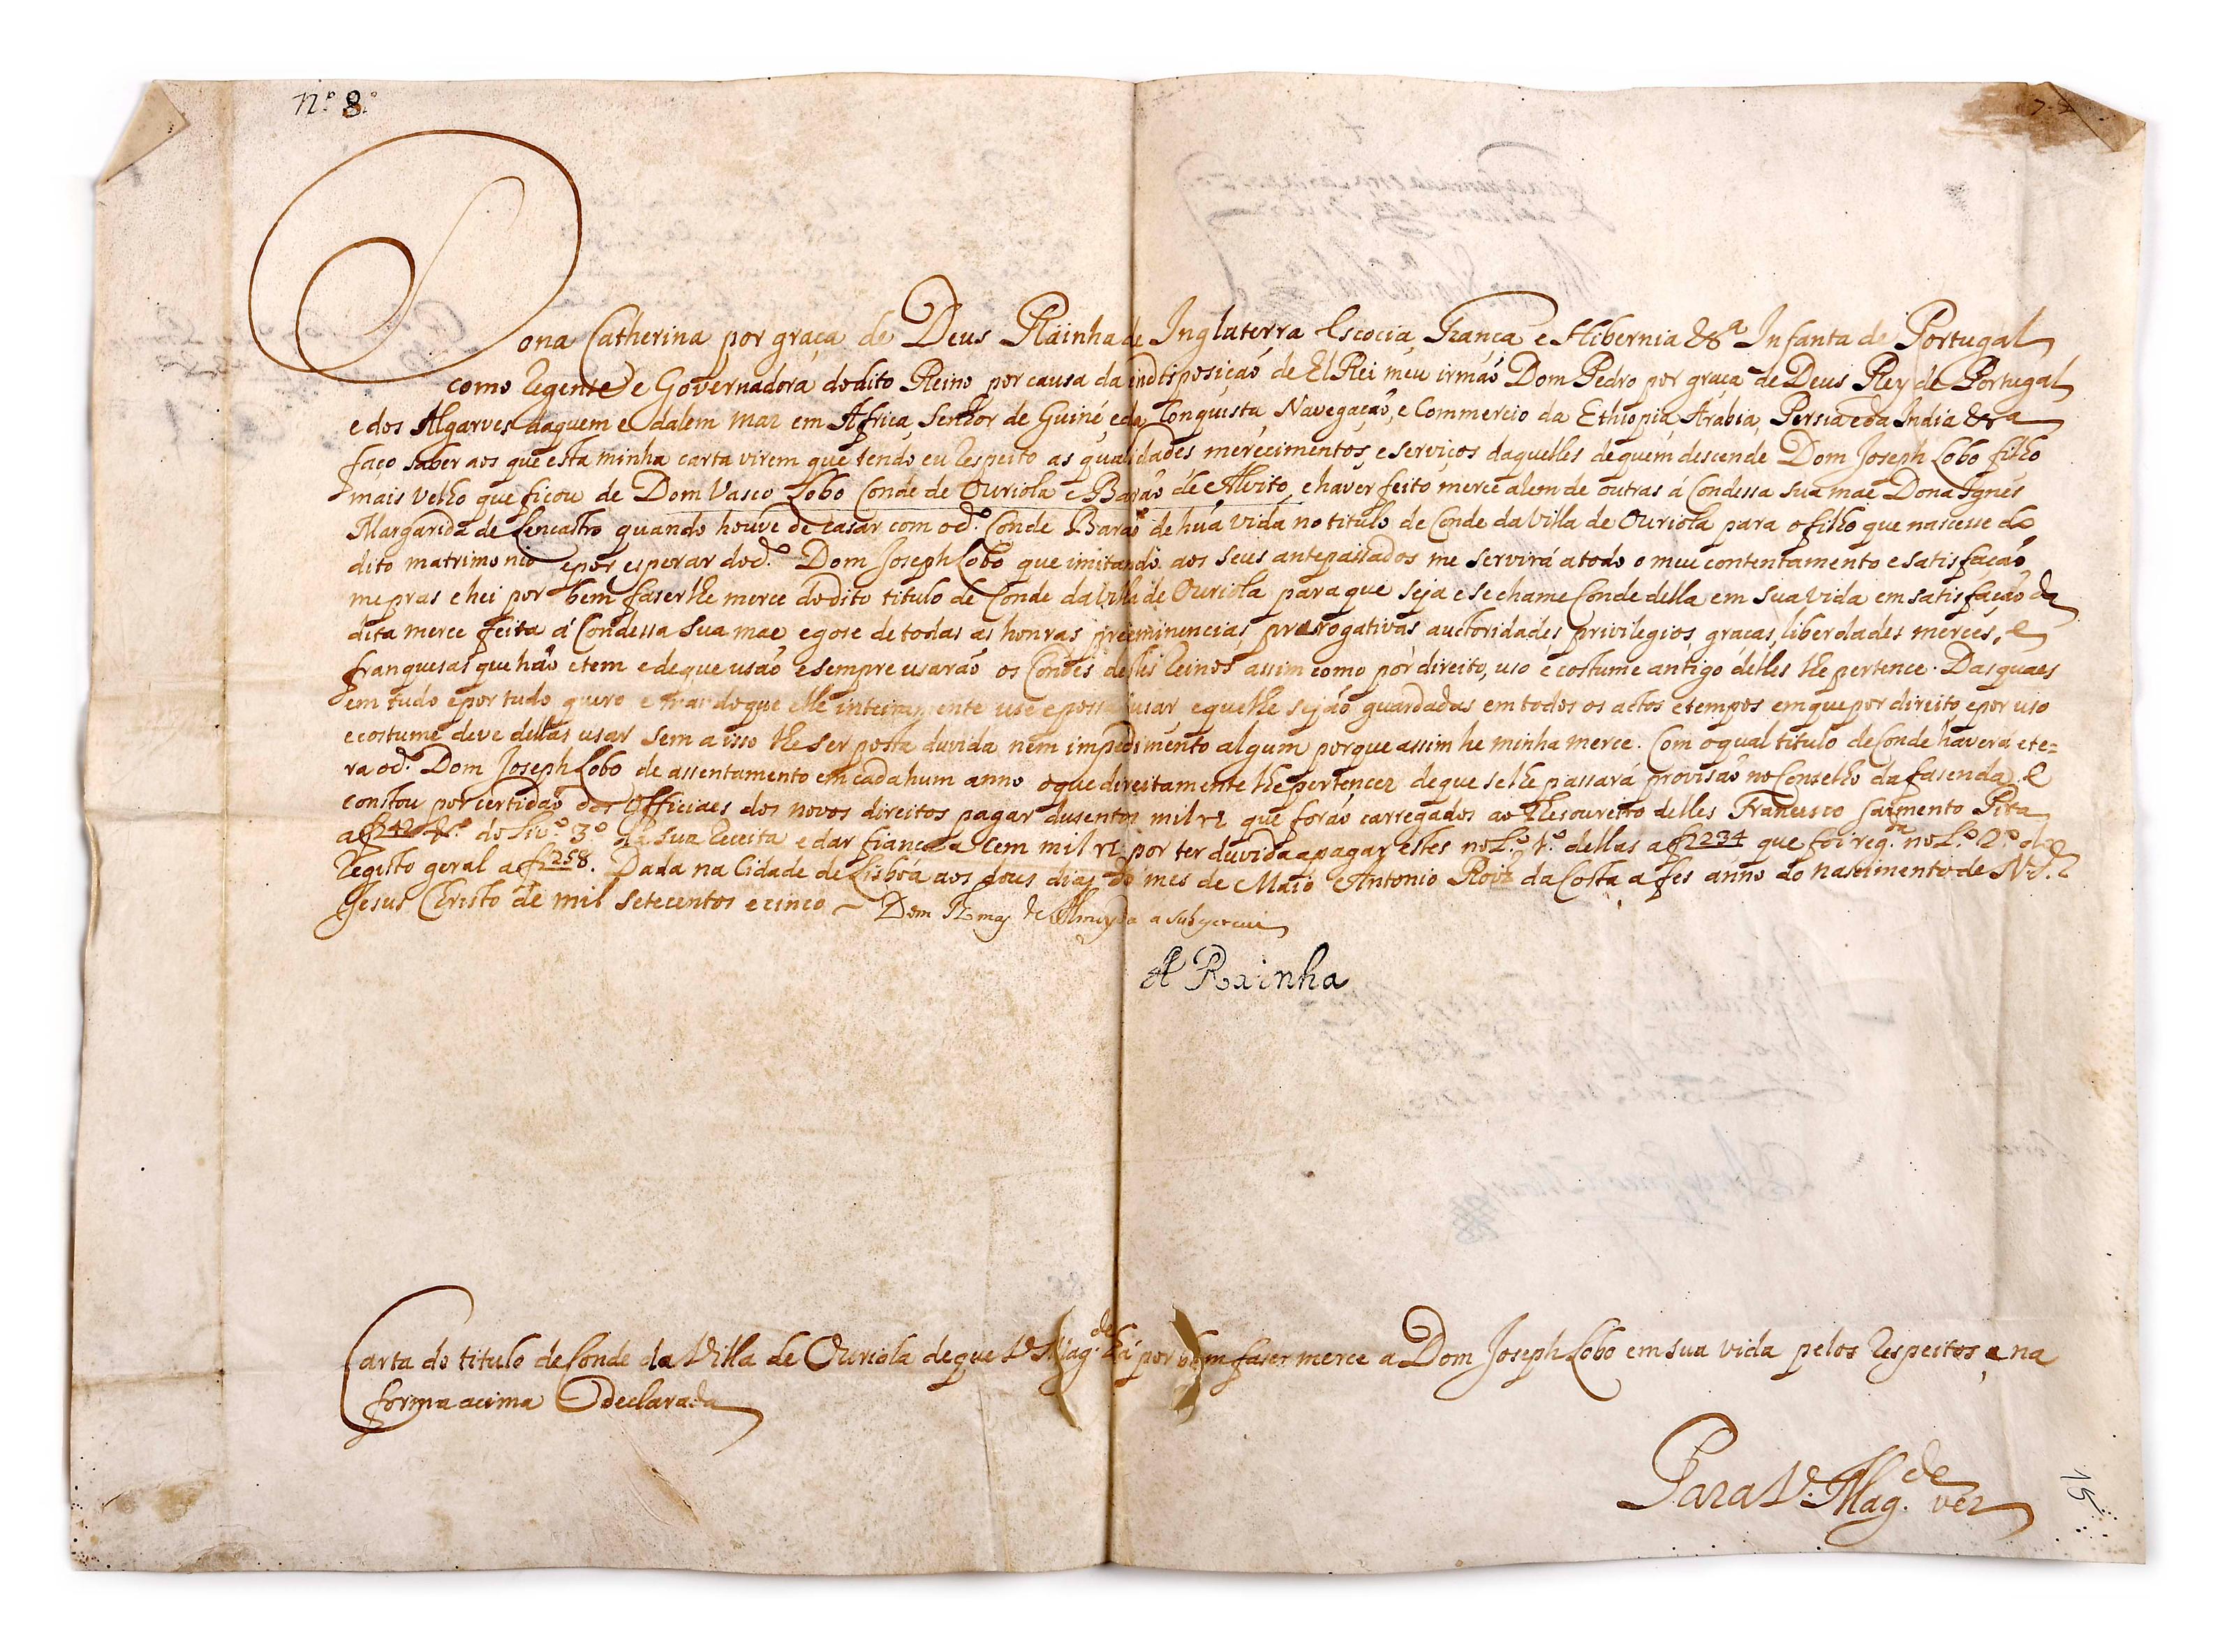 n.º 8.º
Dona Catherina por graça de Deus Rainha de Inglaterra Escocia, França e Hibernia &ª Infanta de Portugal
como Regente e Governadora do dito Reino por causa da indisposição de El Rei meu irmão Dom Pedro por graça de Deus Rey de Portugal
e dos Algarves daquem e dalem mar em Africa, Senhor de Guiné, e da Conquista, Navegação, e Commercio da Ethiopia, Arabia, Persia e da India &ª
faço saber aos que esta minha carta virem que tendo eu respeito as qualidades merecimentos, e serviços daquelles de quem descende Dom Joseph Lobo filho
mais velho que ficou de Dom Vasco Lobo Conde de Ouriola e Barão de Alvito, e haver feito merce alem de outras á Condessa sua mae Dona Ignes
Margarida de Lencastro quando houve de casar com o d.º Conde Barão de hũa vida no titulo de Conde da Villa de Ouriola para o filho que nascesse do
dito matrimonio e por esperar do d.º Dom Joseph Lobo que imitando aos seus antepassados me servirá a todo o meu contentamento e satisfação
me pras e hei por bem faserlhe merce do dito titulo de Conde da Villa de Ouriola para que seja e se chame Conde della em sua vida em satisfação da
dita merce feita á Condessa sua mae e gose de todas as honras, preeminencias prerogativas auctoridades, privilegios, graças, liberdades merces, e
franquesas que hão e tem e de que usão e sempre usarão os Condes destes Reinos assim como por direito, uso e costume antigo delles lhe pertence. Das quaes
em tudo e por tudo quero e mando que elle inteiramente use e possa usar e que lhe sejão guardadas em todos os actos e tempos em que por direito e por uso
e costume deve dellas usar sem a isso lhe ser posta duvida nem impedimento algum porque assim he minha merce. Com o qual titulo de Conde haverá e te=
ra o d.º Dom Joseph Lobo de assentamento em cada hum anno o que direitamente lhe pertencer de que se lhe passará provisão no Conselho da fasenda. E
constou por certidão dos Officiaes dos novos direitos pagar dusentos mil rz que forão carregados ao Thesoureiro delles Francisco Sarmento Pita
a f 242 vº do Livº 3º da sua Receita e dar fiança a cem mil rz por ter duvida a pagar estes no Lº 1º dellas a f 234 que foi reg.da no Lº 2º do
Registo geral a f 258. Dada na Cidade de Lisboa aos dous dias do mes de Maio Antonio Roiz da Costa a fes anno do nascimento de N. S.
Jesus Christo de mil setecentos e cinco Dom Thomas de Almeyda a subscrevi
A Rainha
Carta do titulo de Conde da Villa de Ouriola de que V. Mag.de há por bem faser merce a Dom Joseph Lobo em sua vida pelos respeitos, e na
forma acima declarada
Para V. Mag.de ver
15